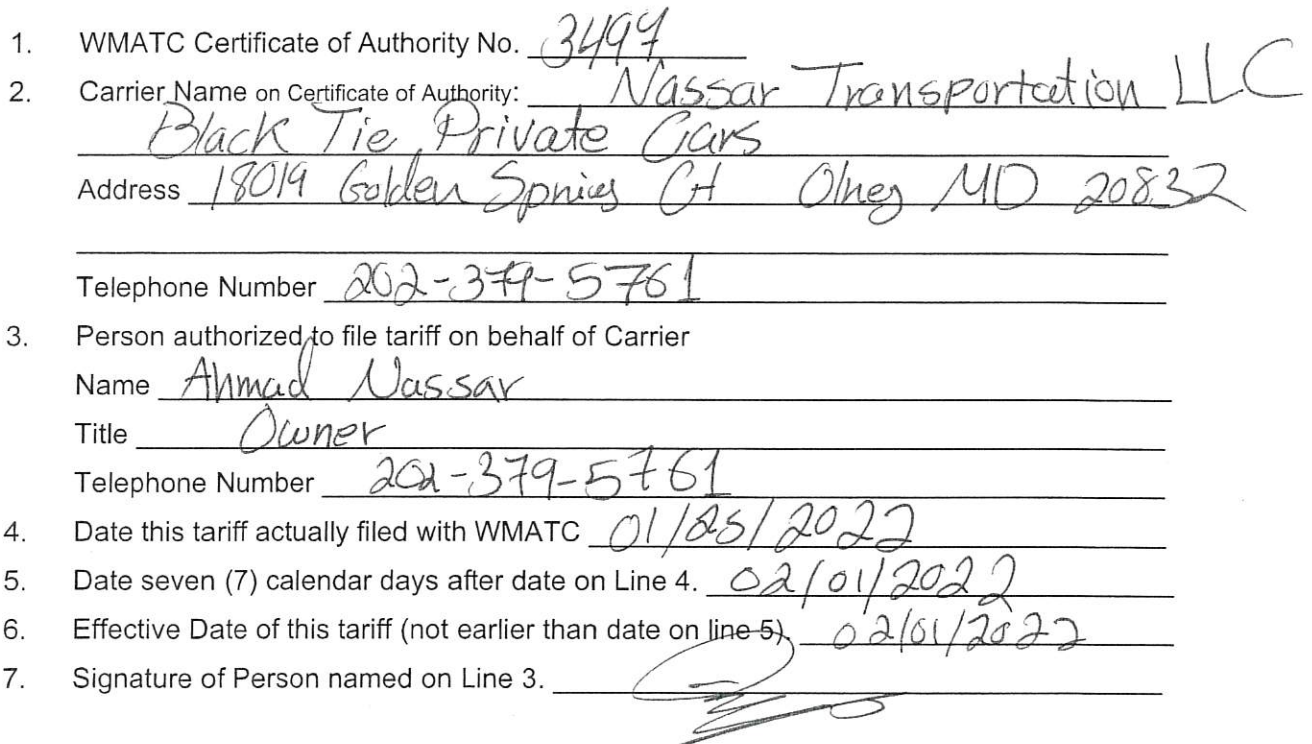 1. WMATC Certificate of Authority No. 3494
2. Carrier Name on Certificate of Authority: Nassar Transportation LLC
Black Tie Private Cars
Address 18019 Golden Springs Ct Olney MD 20832
Telephone Number 202-379-5761
3. Person authorized to file tariff on behalf of Carrier
Name Ahmad Nassar
Title Owner
Telephone Number 202-379-5761
4. Date this tariff actually filed with WMATC 01/25/2022
5. Date seven (7) calendar days after date on Line 4. 02/01/2022
6. Effective Date of this tariff (not earlier than date on line 5). 02/01/2022
7. Signature of Person named on Line 3.